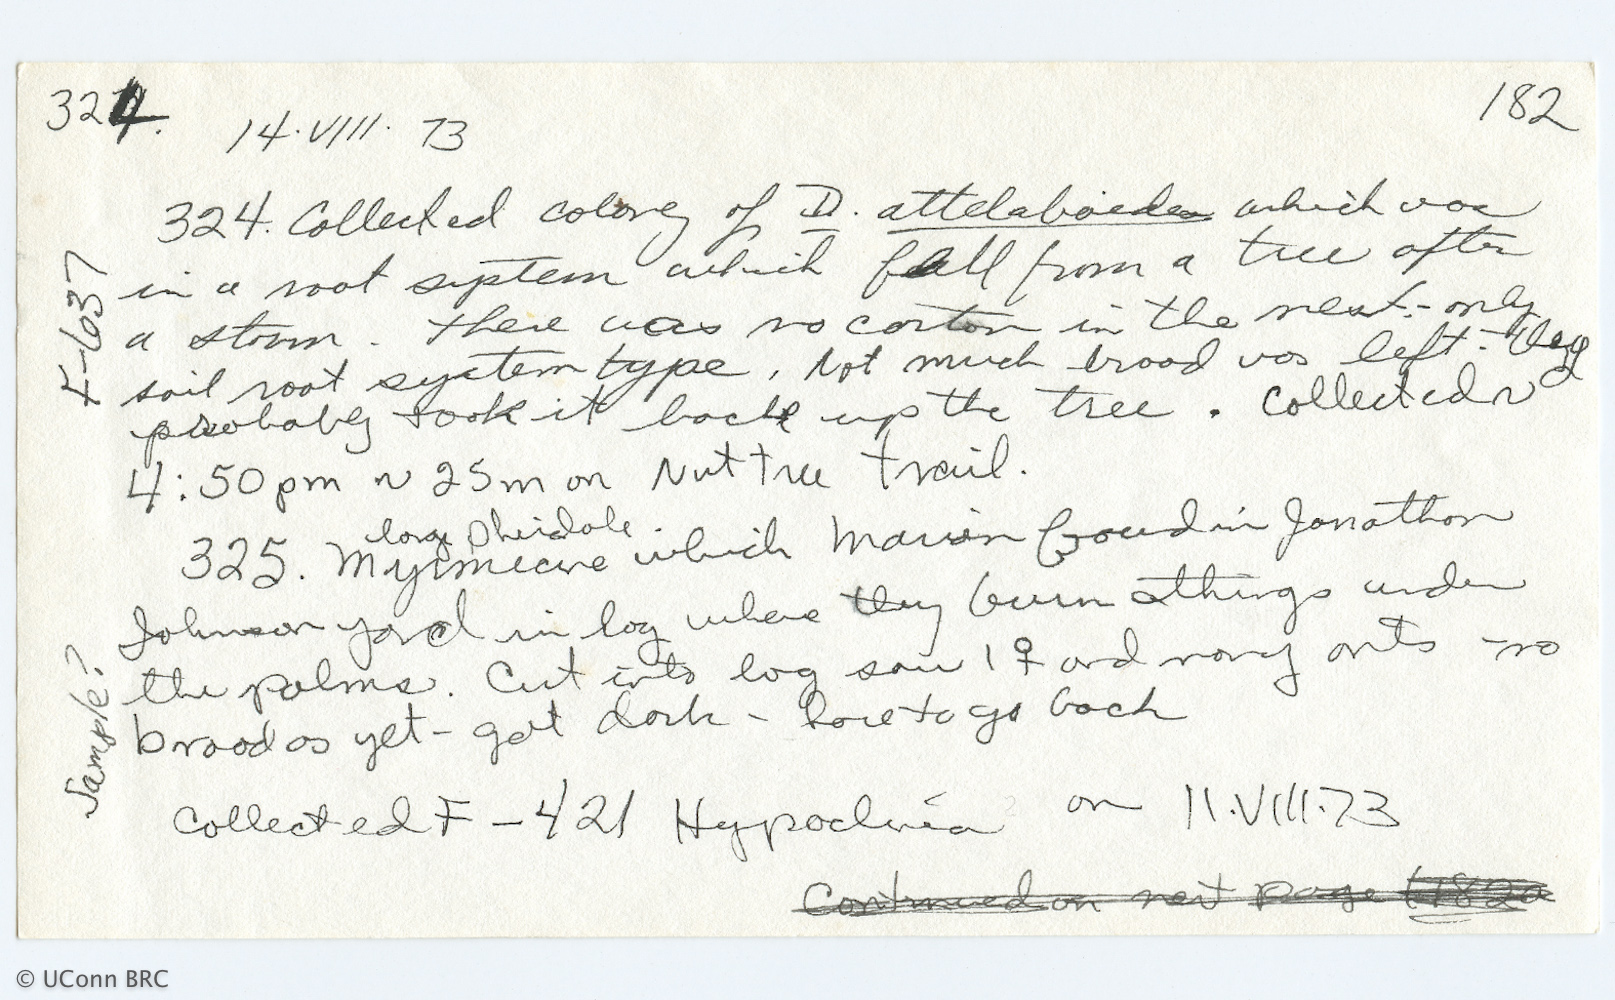 324.
182
14.VIII.73
324. Collected colony of D. attelaboides which was
in a root system which fell from a tree after
a storm. there was no carton in the nest - only
soil root system type. Not much brood was left - they
probably took it back up the tree. Collected ~
4:50pm ~ 25m on Nut tree trail.
large pheidole.
325. Myrmecine which Marian found in Jonathon
Johnson yard in log where they burn things under
the palms. Cut into log saw 1 ♀ and many ants - no
brood as yet - got dark - have to go back
Collected F-421 Hypoclinea on 11.VIII.73
Continued on next page (182a
F-637
Sample?
© UConn BRC